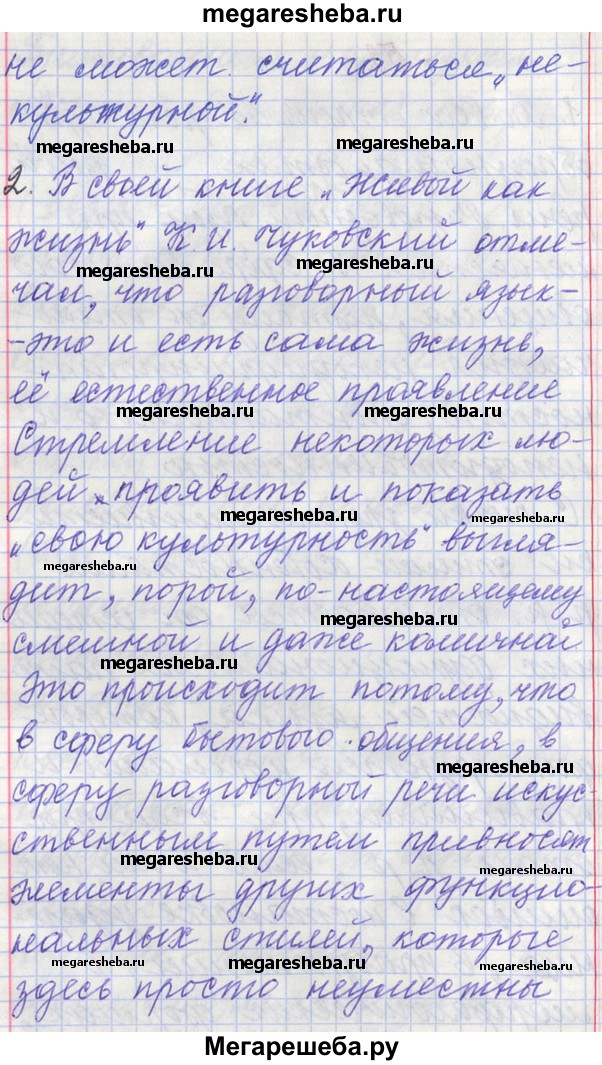 megaresheba.ru
не может считаться „не-
культурной".
megaresheba.ru megaresheba.ru
2. В своей книге „Живой как
жизнь" К.И. Чуковский отме-
megaresheba.ru megaresheba.ru
чал, что разговорный язык-
-это и есть сама жизнь,
её естественное проявление
megaresheba.ru megaresheba.ru
Стремление некоторых лю-
дей проявить и показать
megaresheba.ru megaresheba.ru
„свою культурность" выгля-
megaresheba.ru megaresheba.ru
дит, порой, по-настоящему
megaresheba.ru
смешной и даже комичной
megaresheba.ru
Это происходит потому, что
в сферу бытового общения, в
megaresheba.ru
сферу разговорной речи искус-
ственным путем привносят
megaresheba.ru megaresheba.ru
элементы других функцио-
нальных стилей, которые
megaresheba.ru megaresheba.ru megaresheba.ru
здесь просто неуместны
Мегарешеба.ру